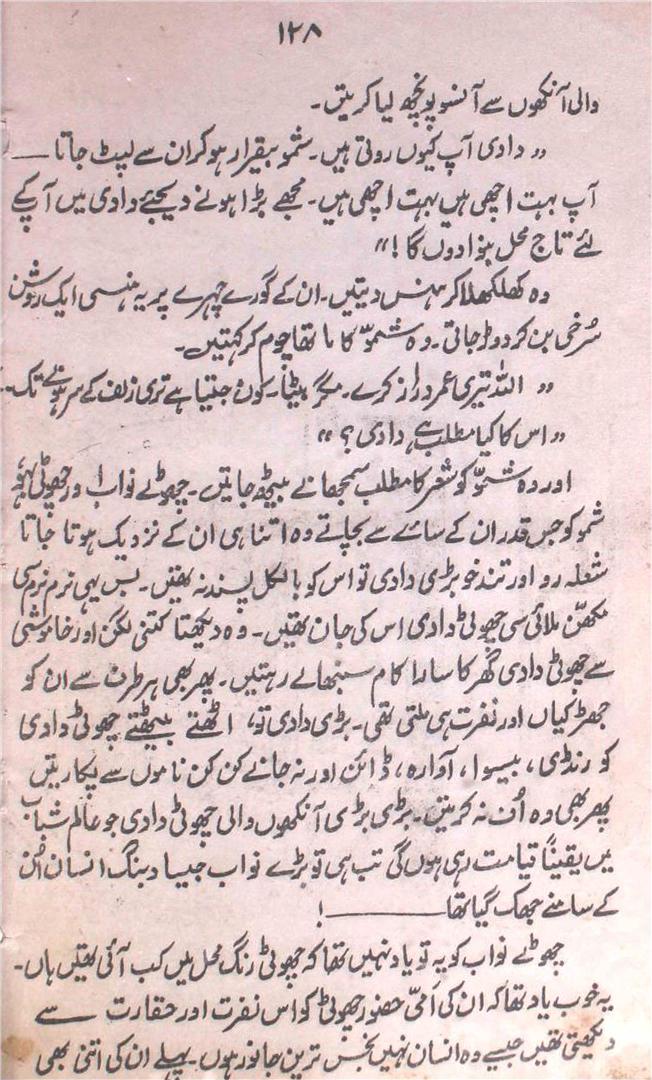 ۱۲۸
والی آنکھوں سے آنسو پونچھ لیا کریتں۔
،، دادی آپ کیوں روتی ہیں۔ شمو بیقرار ہو کر ان سے لپٹ جاتا —
آپ بہت اچھی ہیں بہت اچھی ہیں۔ مجھے بڑا ہونے دیجئے دادی میں آپ کے
لئے تاج محل بنوادوں گا!،،
وہ کھلکھلا کر ہنس دیتیں۔ ان کے گورے چہرے پر یہ ہنسی ایک روشن
سُرخی بن کر دوڑ جاتی۔ وہ شموّ کا ماتھا چوم کر کہتیں۔
،، اللہ تیری عمر دراز کرے۔ مگر بیٹا۔ کون جیتا ہے تری زلف کے سر ہونے تک۔
،، اس کا کیا مطلب ہے دادی؟ ،،
اور وہ شموّ کو شعر کا مطلب سمجھانے بیٹھ جاتیں۔ چھوٹے نواب اور چھوٹی بہو
شمو کو جس قدر ان کے سائے سے بچاتے وہ اتنا ہی ان کے نزدیک ہوتا جاتا
شعلہ رو اور تندخو بڑی دادی تو اس کو بالکل پسند نہ تھیں۔ بس یہی نرم نرم سی
مکھّن ملائی سی چھوٹی دادی اس کی جان تھیں۔ وہ دیکھتا کتنی لگن اور خاموشی
سے چھوٹی دادی گھر کا سارا کام سنبھالے رہتیں۔ پھر بھی ہر طرف سے ان کو
جھڑکیاں اور نفرت ہی ملتی تھی۔ بڑی دادی تو، اٹھتے بیٹھتے چھوٹی دادی
کو رنڈی، بیسوا، آوارہ، ڈائن اور نہ جانے کن کن ناموں سے پکاریتں
پھر بھی وہ اُف نہ کریتں۔ بڑی بڑی آنکھوں والی چھوٹی دادی جو عالم شباب
میں یقیناً قیامت رہی ہوں گی تب ہی تو بڑے نواب جیسا دبنگ انسان اُن
کے سامنے جھک گیا تھا ——— !
چھوٹے نواب کو یہ تو یاد نہیں تھا کہ چھوٹی رنگ محل میں کب آئی تھیں ہاں۔
یہ خوب یاد تھا کہ ان کی اَمّی حضور چھوٹی کو اس نفرت اور حقارت سے
دیکھتی تھیں جیسے وہ انسان نہیں نجس ترین جانور ہوں۔ پہلے ان کی اتنی بھی